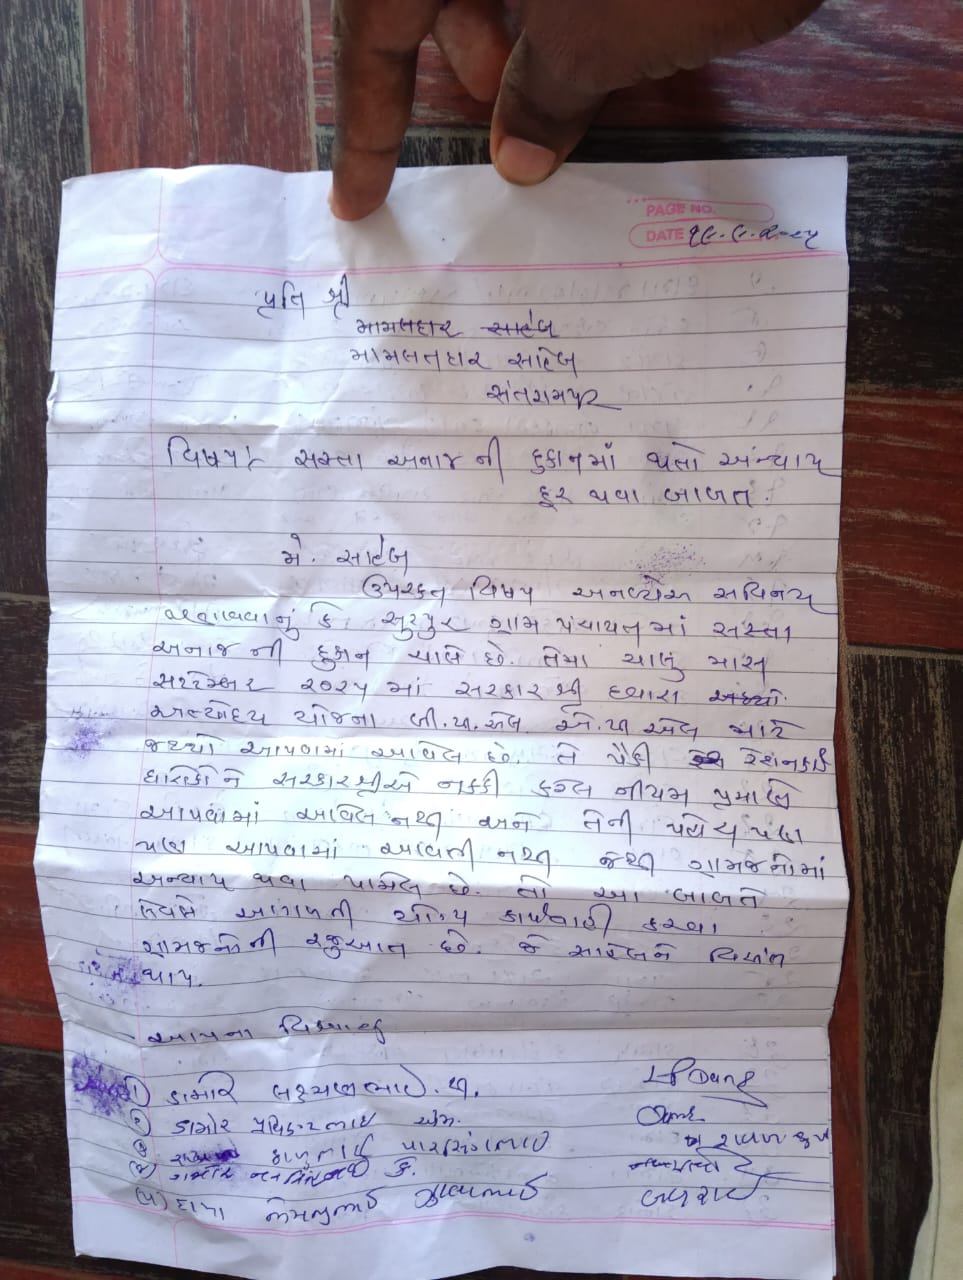 PAGE NO.
DATE ૧૮.૯.૨૦૨૫
પ્રતિ શ્રી
મામલદાર સાહેબ
મામલતદાર સાહેબ
સંતરામપુર
વિષય:- સસ્તા અનાજ ની દુકાનમાં થતો અંન્યાય
દૂર થવા બાબત.
મે. સાહેબ
ઉપરકત વિષય અનવ્યેસ સવિનય
જણાવવાનું કે સુરપુર ગ્રામ પંચાયત માં સસ્તા
અનાજ ની દુકાન ચાલે છે. તેમા ચાલું માસ
સપ્ટેમ્બર ૨૦૨૫ માં સરકાર શ્રી દ્વારા
અંત્યોદય યોજના બી.પી.એલ એ.પી એલ માટે
જથ્થો આપવામાં આવેલ છે. તે પૈકી રેશનકાર્ડ
ધારકોને સરકારશ્રીએ નક્કી કરેલ નીયમ પ્રમાણે
આપવામાં આવેલ નથી અને તેની પહોચ પણ
પણ આપવામાં આવતી નથી જેથી ગ્રામજનોમાં
અન્યાય થવા પામેલ છે. તો આ બાબતે
આગળની યોગ્ય કાર્યવાહી કરવા
ગ્રામજનોની રજુઆત છે. જે સાહેબને વિદાંત
થાય.
આપના વિશ્વાસુ
૧) ડામોર લક્ષ્મણભાઈ. પી. L P Damor
૨) ડામોર એમ.
૩)
૪)
(૫)